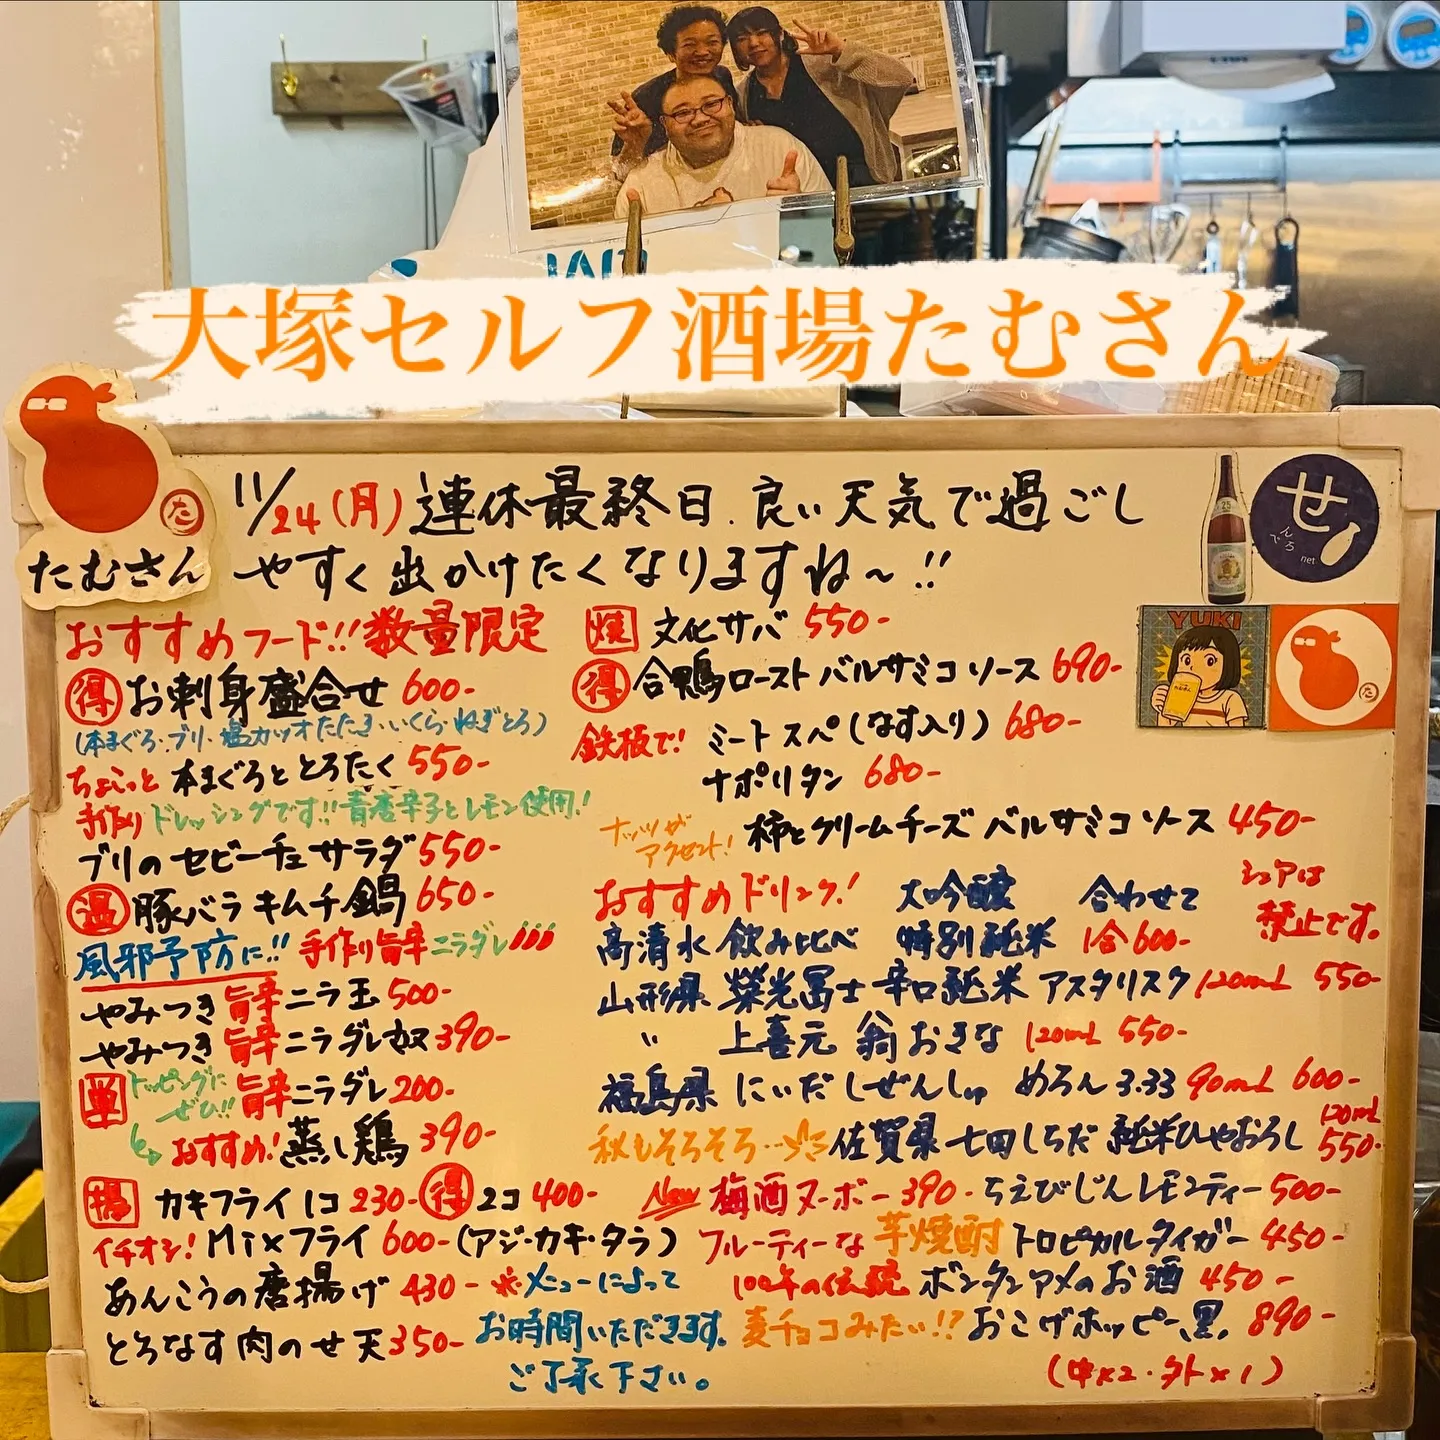 大塚セルフ酒場たむさん
た
たむさん
11/24(月) 連休最終日. 良い天気で過ごし
やすく出かけたくなりますね〜!!
せ
んべろ
net
YUKI
た
おすすめフード!! 数量限定
得 お刺身盛合せ 600-
(本まぐろ・ブリ・塩カツオたたき・いくら・ねぎとろ)
ちょこっと 本まぐろととろたく 550-
手作り ドレッシングです!! 青唐辛子とレモン使用!
ブリのセビーチェサラダ 550-
温 豚バラキムチ鍋 650-
風邪予防に!! 手作り旨辛ニラダレ
やみつき 旨辛ニラ玉 500-
やみつき 旨辛ニラダレ奴 390-
単 トッピングにぜひ!! 旨辛ニラダレ 200-
おすすめ! 蒸し鶏 390-
揚 カキフライ 1コ 230- 得 2コ 400-
イチオシ! Mixフライ 600- (アジ・カキ・タラ)
あんこうの唐揚げ 430-
とろなす肉のせ天 350-
※メニューによって
お時間いただきます。
ご了承下さい。
焼 文化サバ 550-
得 合鴨ロースト バルサミコソース 690-
鉄板で! ミートスパ(なす入り) 680-
ナポリタン 680-
ナッツがアクセント! 柿とクリームチーズ バルサミコソース 450-
おすすめドリンク! 大吟醸 合わせて シェアは
高清水 飲み比べ 特別純米 1合 600- 禁止です。
山形県 榮光冨士 辛口純米 アスタリスク 120mL 550-
〃 上喜元 翁 おきな 120mL 550-
福島県 にいだしぜんしゅ めろん 3.33 90mL 600-
秋もそろそろ… 佐賀県 七田しちだ 純米ひやおろし 120mL 550-
New 梅酒ヌーボー 390- ちえびじんレモンティー 500-
フルーティーな 芋焼酎 トロピカルタイガー 450-
100年の伝統 ボンタンアメのお酒 450-
麦チョコみたい!? おこげホッピー黒 890-
(中×2・外×1)